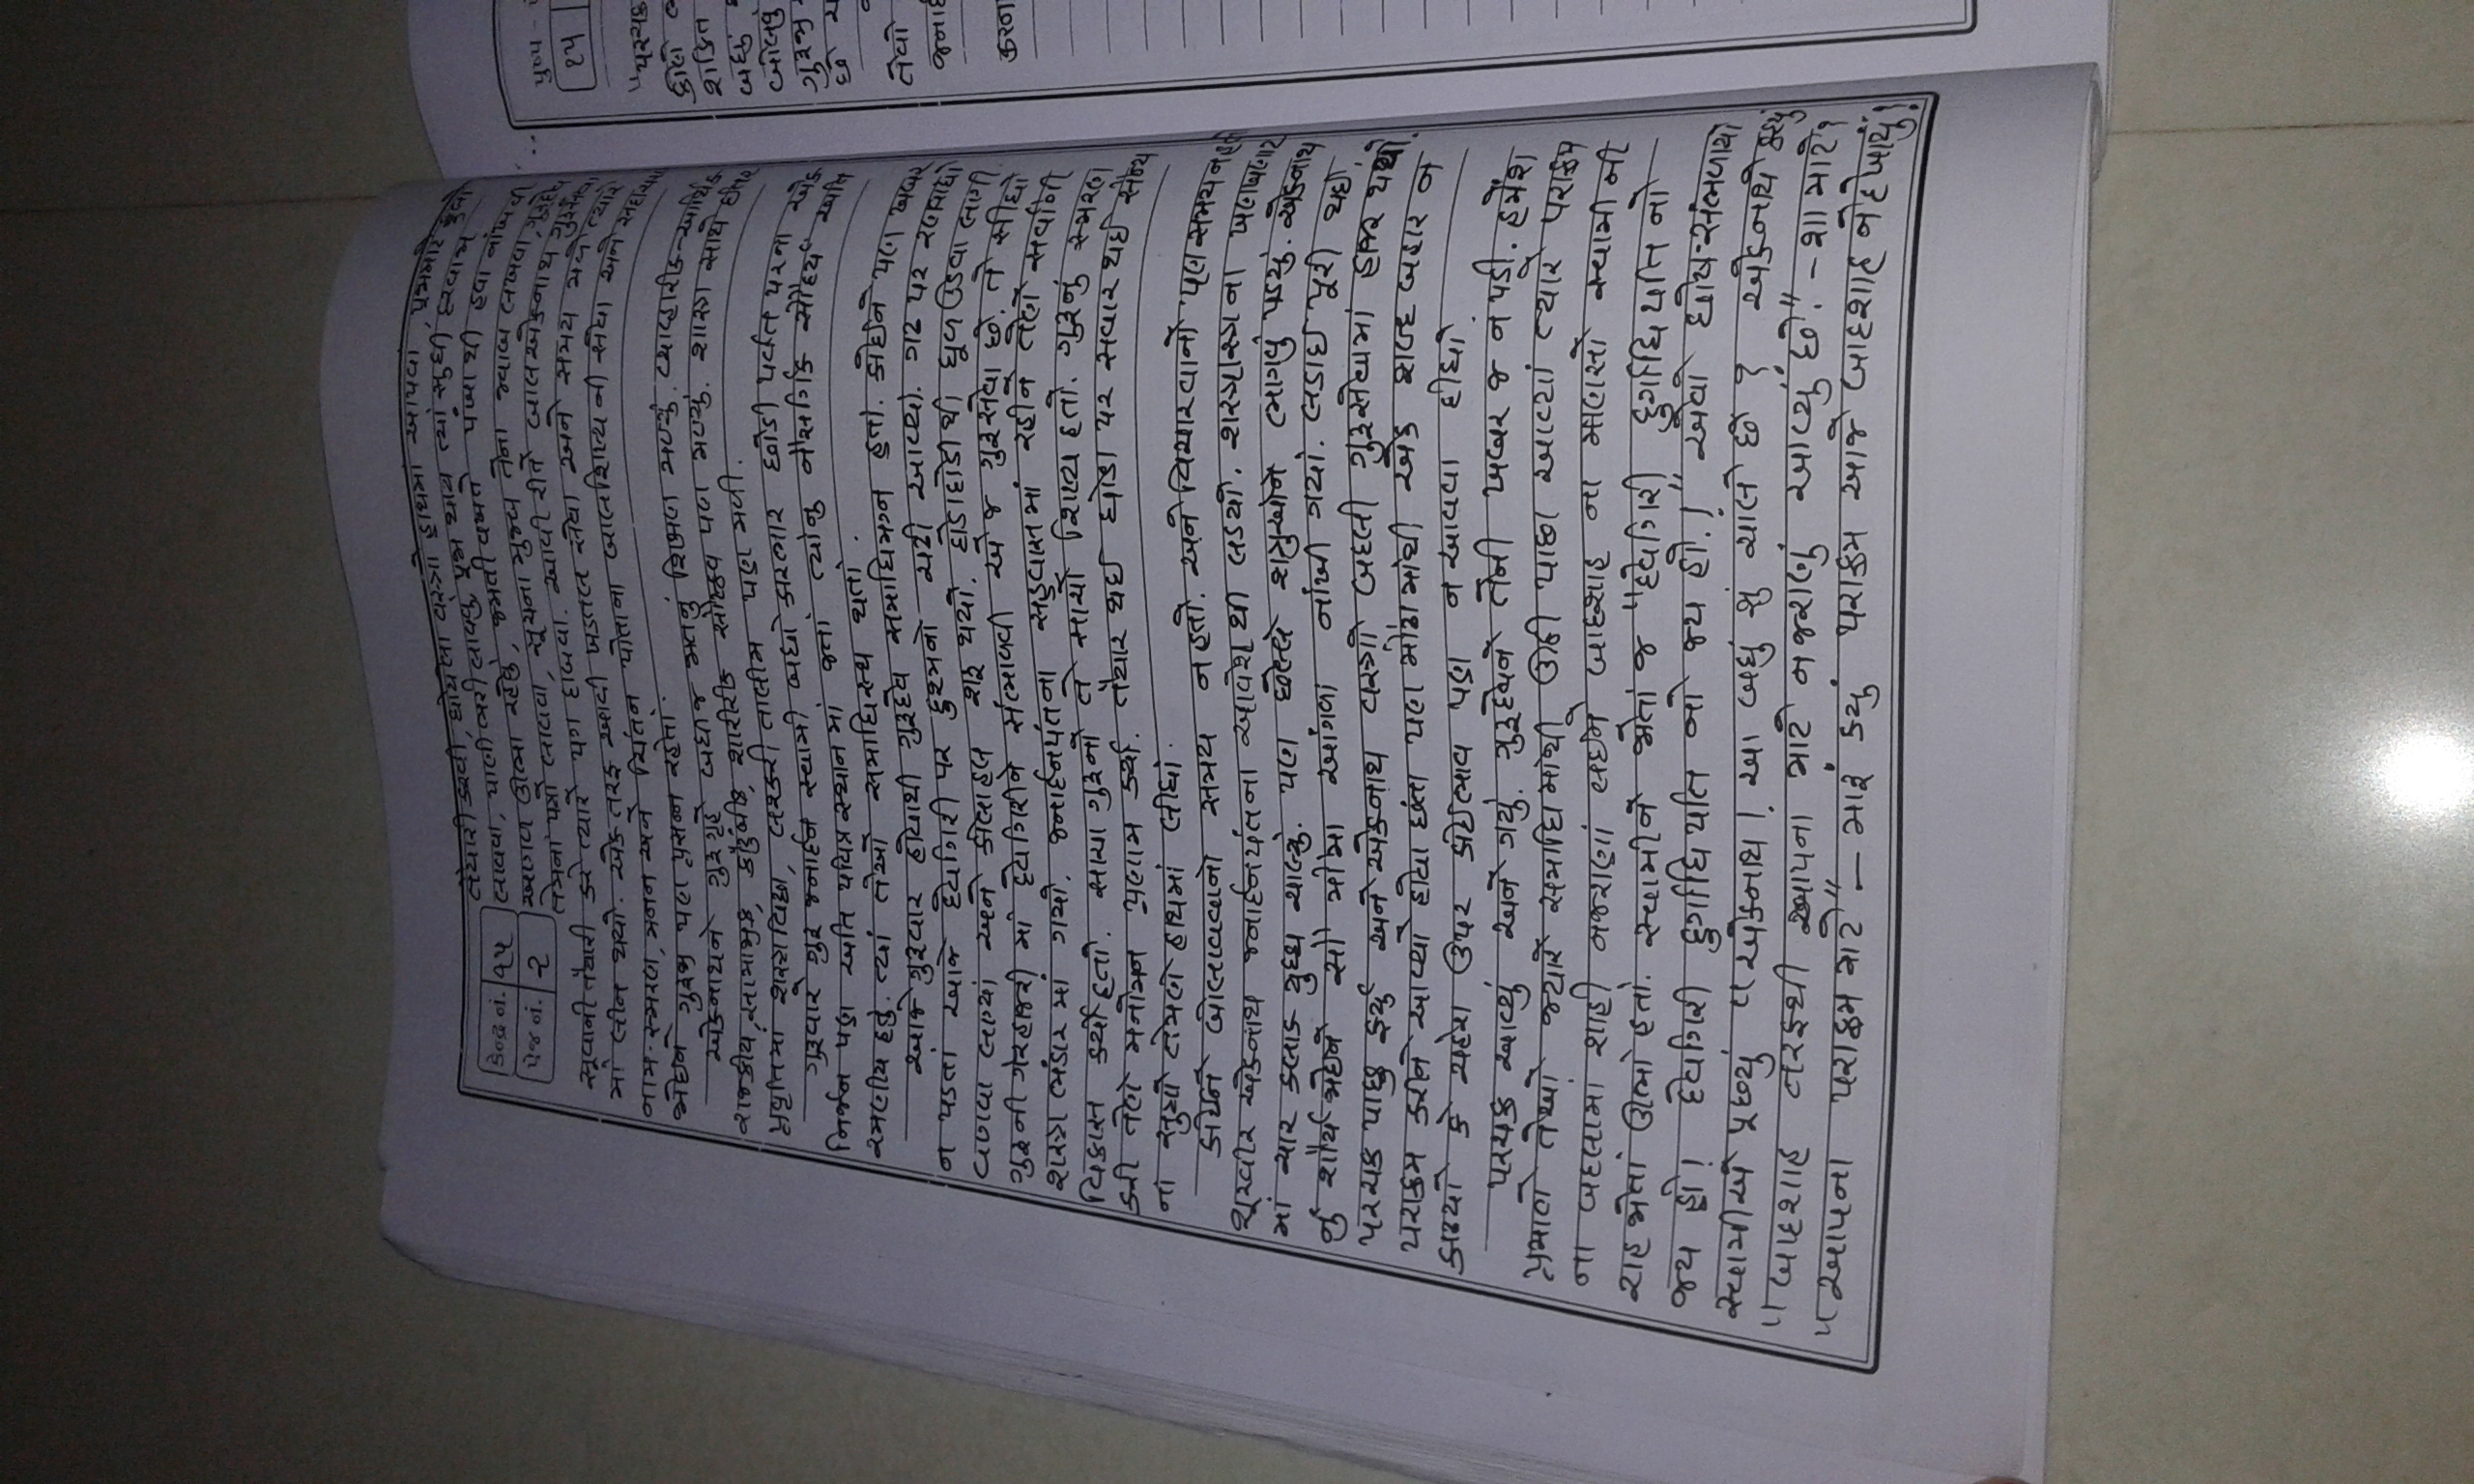 તૈયારી કરવી, ધોયેલા વસ્ત્રો હાથમાં આપવાં, પૂજામાટે ફુલો
કેન્દ્ર નં. ૧૫
લાવવા, પાણી ભરી લાવવું, પૂજા થાય ત્યાં સુધી દરવાજા
પેજ નં. ૨
આગળ ઊભા રહેવું, જમતી વખતે પંખાથી હવા નાંખવી
તેમનાં પત્રો લાવવા, સૂચના મુજબ તેના જવાબ લખવા, ગુરૂદેવ
સૂવાની તૈયારી કરે ત્યારે પગ દાબવા. આવી રીતે બાલ એકનાથ ગુરૂસેવા
માં લીન થયો. એક તરફ આવી ખડતલ સેવા અને સમય મળે ત્યારે
નામ-સ્મરણ, મનન અને ચિંતન પોતાના બાલશિષ્યની સેવા અને
જોઇને ગુરૂજી પણ પ્રસન્ન રહેતાં.
એકનાથને ગુરૂગૃહે બધાજ મતનું શિક્ષણ મળ્યું. વ્યાવ્હારીક-આર્થિક
રાજકીય, સામાજીક, કૌટુંબીક, શારીરીક સૌષ્ઠવ પણ મળ્યું. શાસ્ત્ર સાથે ઈતર
પ્રવૃત્તિમાં શસ્ત્રવિદ્યા, લશ્કરી તાલીમ પણ મળી.
ગુરૂવારે ગુરૂ જનાર્દન સ્વામી બધો કારભાર છોડી પર્વત પરના એક
નિર્જન પણ અતિ પવિત્ર સ્થાનમાં જતાં ત્યાંનુ નૈસર્ગિક સૌંદર્ય અતિ
રમણીય હતું. ત્યાં તેઓ સમાધિસ્થ થતાં.
આજે ગુરૂવાર હોવાથી ગુરૂદેવ સમાધિમગ્ન હતાં. કોઈને પણ ખબર
ન પડતાં આજે દેવગિરી પર દુશ્મનો ચઢી આવ્યાં. ગઢ પર રણવાદ્યો
વાગવા લાગ્યાં અને કોલાહલ શરૂ થયો. દોડાદોડી થી ધૂળ ઉડવા લાગી
ગુરૂની ગેરહાજરી માં દેવગિરીને સંભાળવી એ જ ગુરૂસેવા છે. તે સીધો
શસ્ત્ર ભંડાર માં ગયો. જનાર્દનપંતના સહવાસમાં રહીને તેણે સર્વાંગી
વિકાસ કર્યો હતો. સાચા ગુરૂનો તે સાચો શિષ્ય હતો. ગુરૂનું સ્મરણ
કરી તેણે મનોમન પ્રણામ કર્યાં. તૈયાર થઈ ઘોડા પર સવાર થઈ સૈન્ય
નાં સુત્રો તેમણે હાથમાં લીધાં.
કોઈને બોલાવવાનો સમય ન હતો. અને વિચારવાનો પણ સમય ન હતો
શૂરવીર એકનાથ જનાર્દનપંતના આવેશ થી લડયો. શસ્ત્રાસ્ત્ર ના ખણખણાટ
માં ચાર કલાક યુધ્ધ ચાલ્યું. પણ છેલ્લે શત્રુઓને ભાગવું પડયું. એકનાથ
નું શૌર્ય જોઇને સૌ મોંમા આંગળા નાંખી ગયાં. લડાઇ પૂરી થઈ.
પરચક્ર પાછુ ફર્યું અને એકનાથ વસ્ત્રો બદલી ગુરૂસેવામાં હાજર થયો.
પરાક્રમ કરીને આવ્યો હોવા છતા પણ મોંઢા માંથી એક શબ્દ બહાર ન
કાઢયો કે ચહેરા ઉપર કોઈભાવ પણ ન આવવા દીધો
પરચક્ર આવ્યું અને ગયું. ગુરૂદેવને તેની ખબર જ ન પડી. હંમેશ
પ્રમાણે તેઓ જ્યારે સમાધિ માંથી ઊઠી પાછા આવ્યાં ત્યારે પરાક્રમ
ના બદલામાં શાહી નજરાણાં લઇને બાદશાહ ના માણસો સ્વામી ની
રાહ જોતાં ઊભાં હતાં. સ્વામીને જોતાં જ "દેવગિરી દુર્ગાધિપતિ નો
જય હો! દેવગિરી દુર્ગાધિપતિ નો જય હો.!" એવો ઘોષ-સંભળાયો
સ્વામીએ પૂછ્યું "એકનાથ! આ બધું શું ચાલે છે? એકનાથે કહ્યું
"બાદશાહ તરફથી આપના માટે નજરાણું આવ્યું છે." - શા માટે?
"આપના પરાક્રમ માટે" - મારૂં કયું પરાક્રમ આજે બાદશાહ ને દેખાયું!
પુષ્પ -
૧૫
"પરચક્ર
કોણે
શકિત
બધું
બોલવું
ગુરૂજી
છે
તેવો
કરના